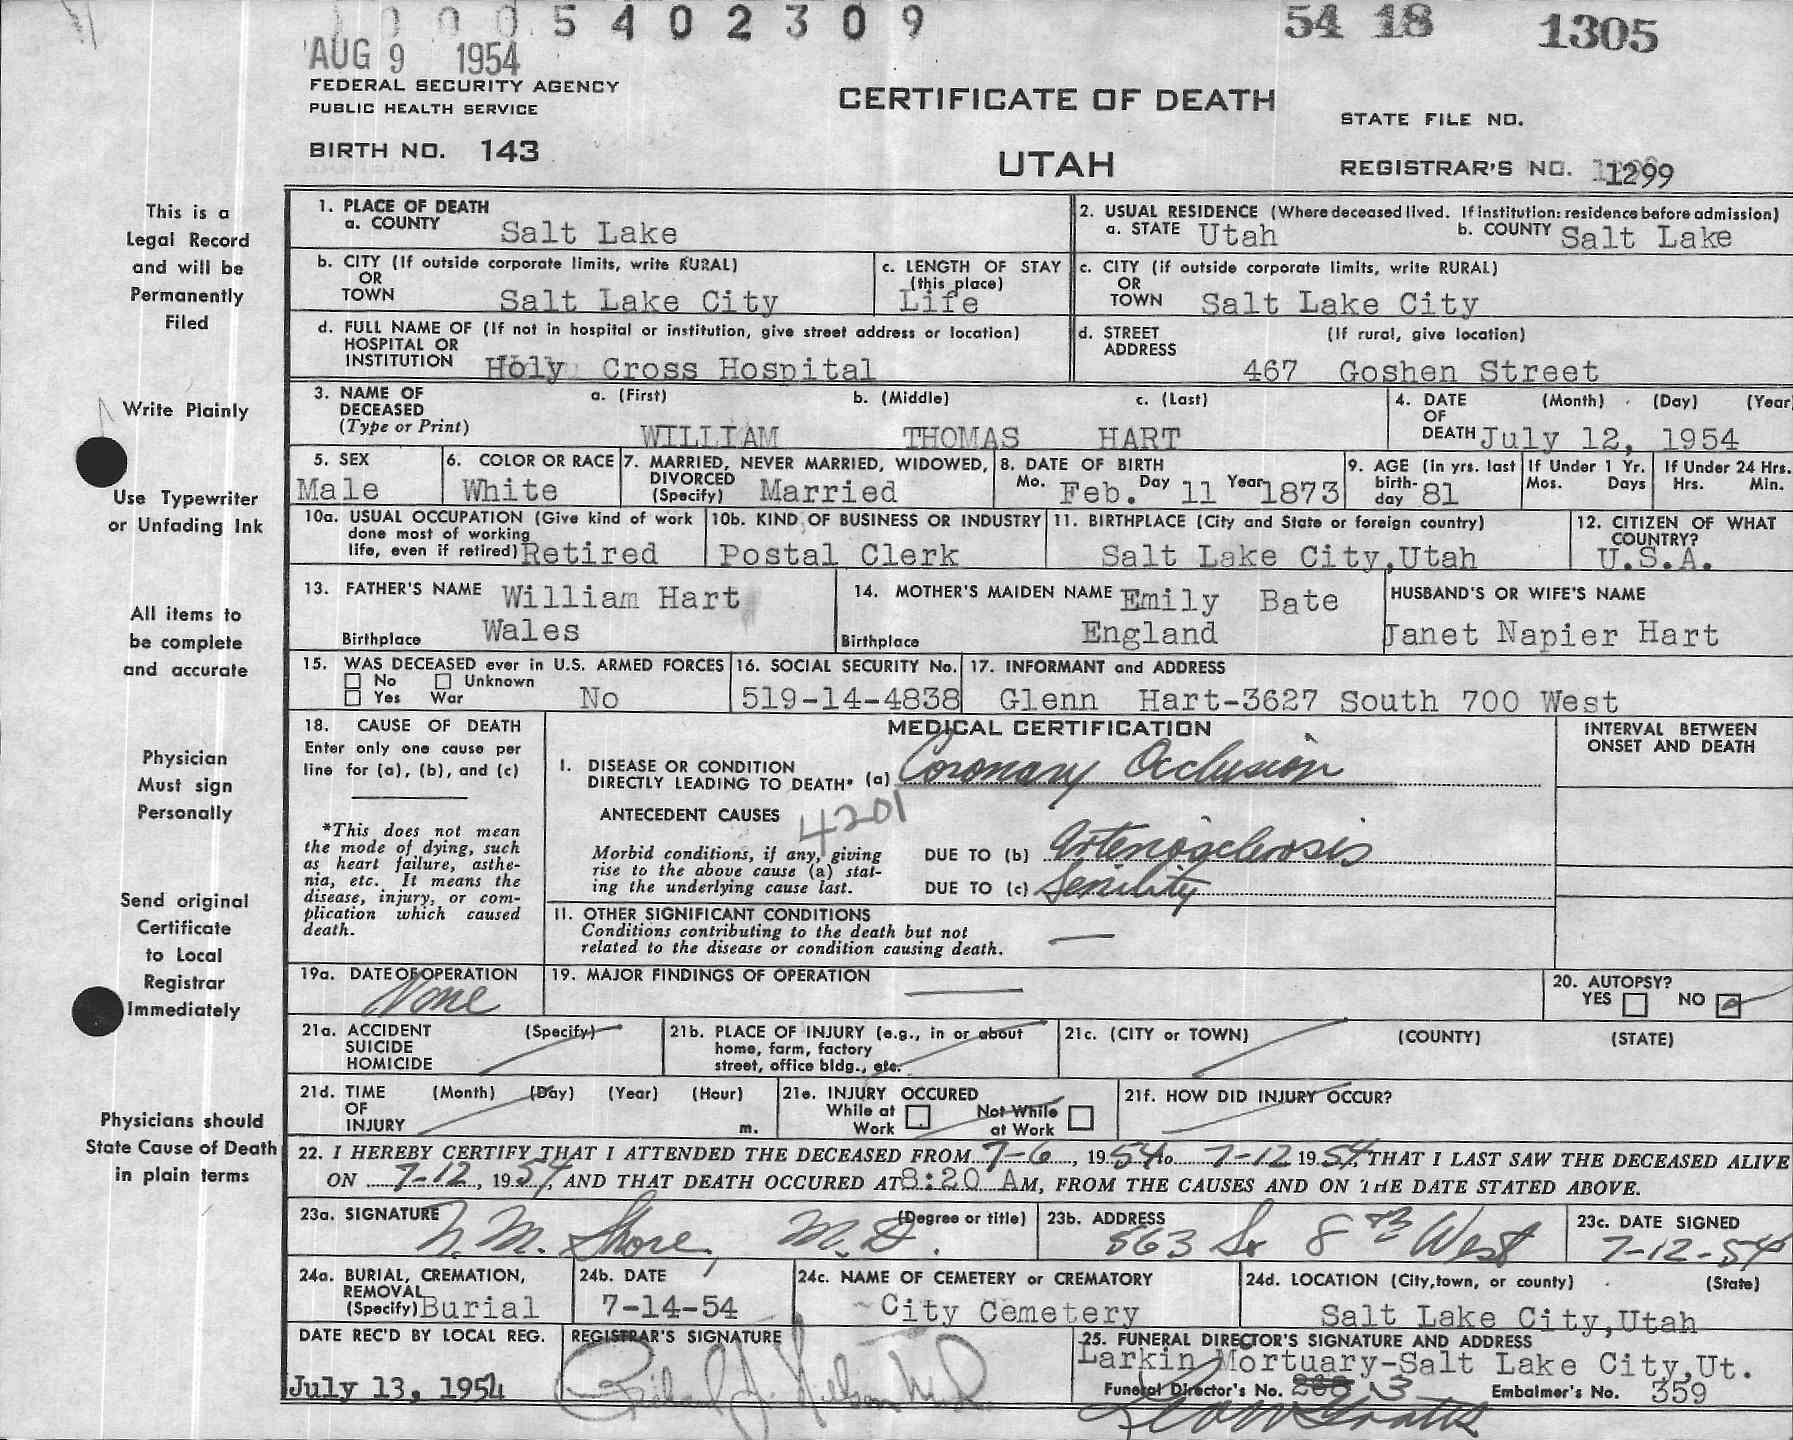 0005402309
54 18 1305
AUG 9 1954
FEDERAL SECURITY AGENCY
PUBLIC HEALTH SERVICE
CERTIFICATE OF DEATH
STATE FILE NO.
BIRTH NO. 143
UTAH
REGISTRAR'S NO. 1299
This is a
Legal Record
and will be
Permanently
Filed
Write Plainly
Use Typewriter
or Unfading Ink
All items to
be complete
and accurate
Physician
Must sign
Personally
Send original
Certificate
to Local
Registrar
Immediately
Physicians should
State Cause of Death
in plain terms
1. PLACE OF DEATH
a. COUNTY Salt Lake
2. USUAL RESIDENCE (Where deceased lived. If institution: residence before admission)
a. STATE Utah b. COUNTY Salt Lake
b. CITY (If outside corporate limits, write RURAL)
OR
TOWN Salt Lake City
c. LENGTH OF STAY
(this place)
Life
c. CITY (if outside corporate limits, write RURAL)
OR
TOWN Salt Lake City
d. FULL NAME OF (If not in hospital or institution, give street address or location)
HOSPITAL OR
INSTITUTION Holy Cross Hospital
d. STREET (If rural, give location)
ADDRESS
467 Goshen Street
3. NAME OF a. (First) b. (Middle) c. (Last)
DECEASED
(Type or Print) WILLIAM THOMAS HART
4. DATE (Month) (Day) (Year
OF
DEATH July 12, 1954
5. SEX
Male
6. COLOR OR RACE
White
7. MARRIED, NEVER MARRIED, WIDOWED,
DIVORCED
(Specify) Married
8. DATE OF BIRTH
Mo. Feb. Day 11 Year 1873
9. AGE (In yrs. last
birth-
day 81
If Under 1 Yr.
Mos. Days
If Under 24 Hrs.
Hrs. Min.
10a. USUAL OCCUPATION (Give kind of work
done most of working
life, even if retired) Retired
10b. KIND OF BUSINESS OR INDUSTRY
Postal Clerk
11. BIRTHPLACE (City and State or foreign country)
Salt Lake City,Utah
12. CITIZEN OF WHAT
COUNTRY?
U.S.A.
13. FATHER'S NAME William Hart
Birthplace Wales
14. MOTHER'S MAIDEN NAME Emily Bate
Birthplace England
HUSBAND'S OR WIFE'S NAME
Janet Napier Hart
15. WAS DECEASED ever in U.S. ARMED FORCES
No Unknown
Yes War No
16. SOCIAL SECURITY No.
519-14-4838
17. INFORMANT and ADDRESS
Glenn Hart-3627 South 700 West
18. CAUSE OF DEATH
Enter only one cause per
line for (a), (b), and (c)
*This does not mean
the mode of dying, such
as heart failure, asthe-
nia, etc. It means the
disease, injury, or com-
plication which caused
death.
MEDICAL CERTIFICATION
INTERVAL BETWEEN
ONSET AND DEATH
I. DISEASE OR CONDITION
DIRECTLY LEADING TO DEATH* (a) Coronary Occlusion
ANTECEDENT CAUSES
4201
Morbid conditions, if any, giving
rise to the above cause (a) stat-
ing the underlying cause last.
DUE TO (b) Arteriosclerosis
DUE TO (c) Senility
II. OTHER SIGNIFICANT CONDITIONS
Conditions contributing to the death but not
related to the disease or condition causing death.
19a. DATE OF OPERATION
None
19. MAJOR FINDINGS OF OPERATION
20. AUTOPSY?
YES NO
21a. ACCIDENT (Specify)
SUICIDE
HOMICIDE
21b. PLACE OF INJURY (e.g., in or about
home, farm, factory
street, office bldg., etc.
21c. (CITY or TOWN) (COUNTY) (STATE)
21d. TIME (Month) (Day) (Year) (Hour)
OF
INJURY m.
21e. INJURY OCCURED
While at Not While
Work at Work
21f. HOW DID INJURY OCCUR?
22. I HEREBY CERTIFY THAT I ATTENDED THE DECEASED FROM 7-6, 1954 to 7-12 1954, THAT I LAST SAW THE DECEASED ALIVE
ON 7-12, 1954, AND THAT DEATH OCCURED AT 8:20 AM, FROM THE CAUSES AND ON THE DATE STATED ABOVE.
23a. SIGNATURE (Degree or title)
N. M. Shore, M.D.
23b. ADDRESS
563 So 8th West
23c. DATE SIGNED
7-12-54
24a. BURIAL, CREMATION,
REMOVAL
(Specify) Burial
24b. DATE
7-14-54
24c. NAME OF CEMETERY or CREMATORY
City Cemetery
24d. LOCATION (City,town, or county) (State)
Salt Lake City,Utah
DATE REC'D BY LOCAL REG.
July 13, 1954
REGISTRAR'S SIGNATURE
25. FUNERAL DIRECTOR'S SIGNATURE AND ADDRESS
Larkin Mortuary-Salt Lake City,Ut.
Funeral Director's No. 3 Embalmer's No. 359